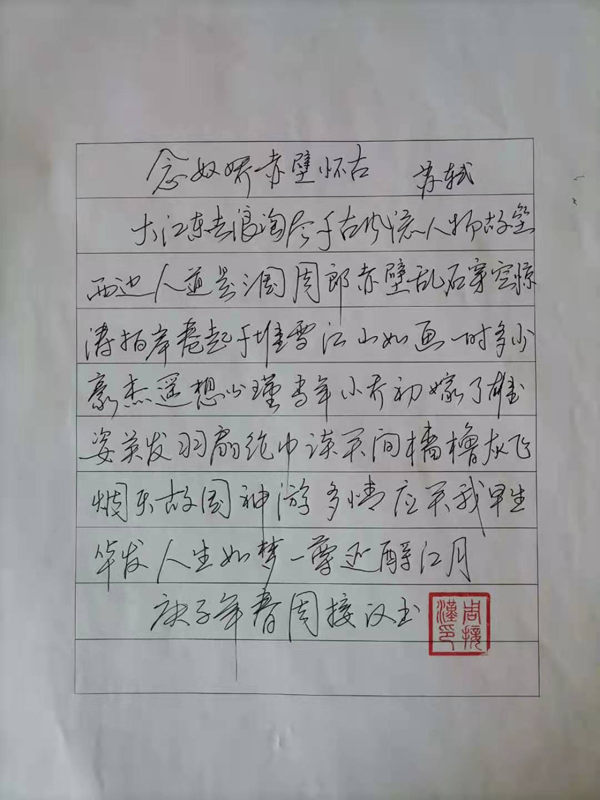 念奴娇赤壁怀古 苏轼
大江东去浪淘尽千古风流人物故垒
西边人道是三国周郎赤壁乱石穿空惊
涛拍岸卷起千堆雪江山如画一时多少
豪杰遥想公瑾当年小乔初嫁了雄
姿英发羽扇纶巾谈笑间樯橹灰飞
烟灭故国神游多情应笑我早生
华发人生如梦一尊还酹江月
庚子年春周接汉书
周接漢印